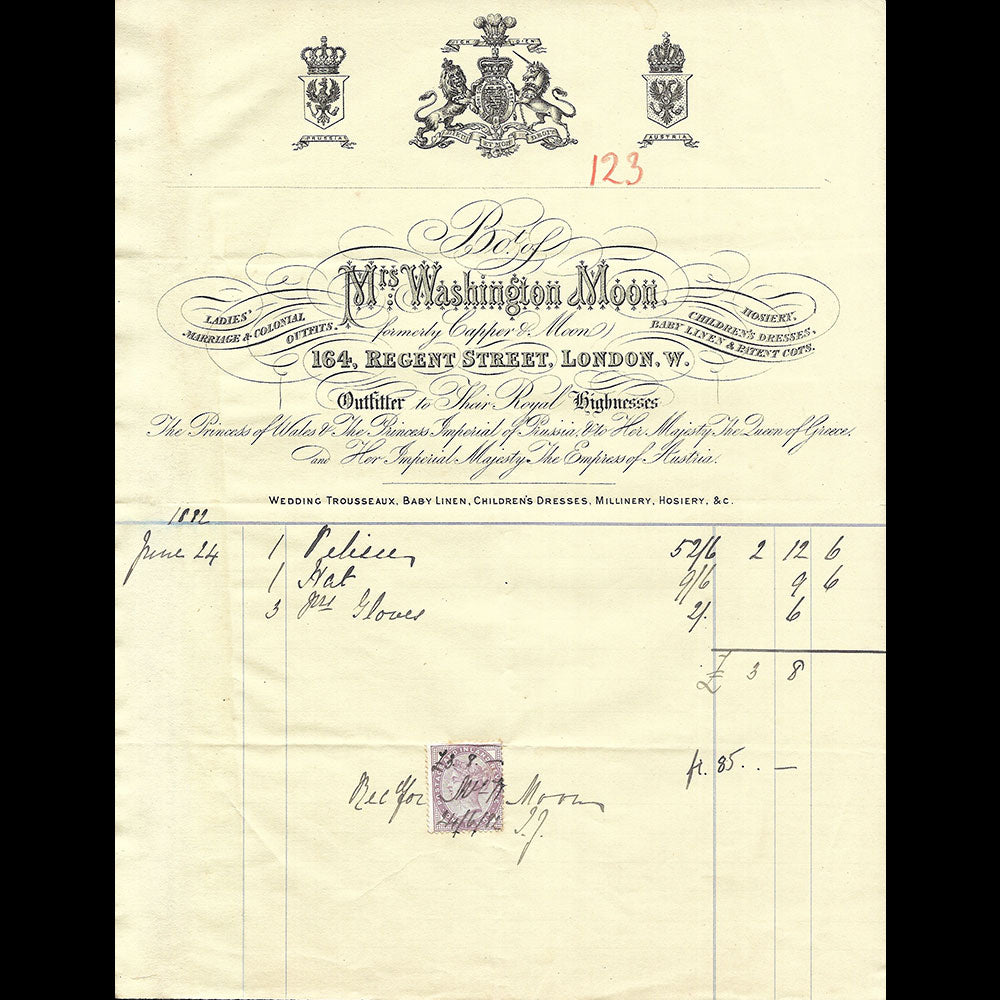 ICH DIEN
PRUSSIA
DIEU ET MON DROIT
AUSTRIA
123
Bot. of
Mrs. Washington Moon.
(formerly Capper & Moon)
LADIES'
MARRIAGE & COLONIAL
OUTFITS.
HOSIERY,
CHILDREN'S DRESSES,
BABY LINEN & PATENT COTS.
164, REGENT STREET, LONDON, W.
Outfitter to Their Royal Highnesses
The Princess of Wales & The Princess Imperial of Prussia, & to Her Majesty The Queen of Greece,
and Her Imperial Majesty The Empress of Austria.
WEDDING TROUSSEAUX, BABY LINEN, CHILDREN'S DRESSES, MILLINERY, HOSIERY, &C.
1882
June 24 1 Pelisse 52/6 2 12 6
1 Hat 9/6 9 6
3 prs Gloves 2/. 6
£ 3 8
fr. 85.. —
£3.8.—
Rec for Mrs W Moon
24/6/82 J.J.